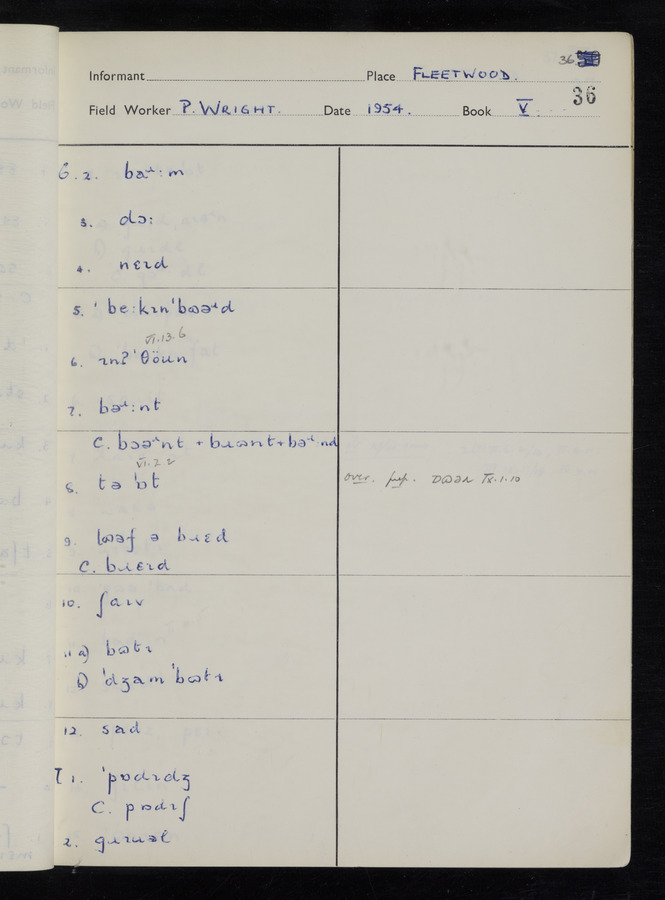 36
Informant Place FLEETWOOD.
36
Field Worker P. WRIGHT. Date 1954. Book V.
6. 2. baɹ:m
3. dɔ:
4. nɛɪd
5. ˈbe:kɪnˈbɷəɹd
VI.13.6
6. ɪnʔˈθöun
7. bəɹ:nt
C. bɔəɹnt + bɹɷnt + bəɹ:nd
VI.2.2
8. tə ˈɒt
over. prep. ɒɷəɹ IX.1.10
9. lɷəf ə bɹɛd
C. bɹɛɪd
10. ʃaɪv
11 a) bɷtɪ
b) ˈdʒamˈbɷtɪ
12. sad
7 1. ˈpɒdɪdʒ
C. pɒdɪʃ
2. gɹɪuəl